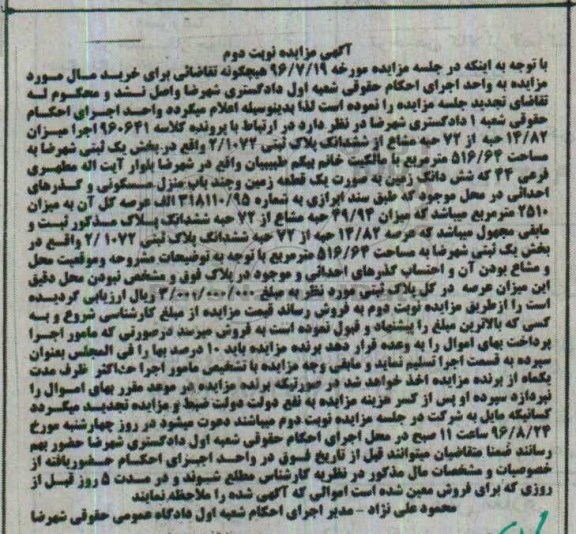 آگهی مزایده نوبت دوم
با توجه به اینکه در جلسه مزایده مورخه ۹۶/۷/۱۹ هیچگونه تقاضائی برای خرید مال مورد
مزایده به واحد اجرای احکام حقوقی شعبه اول دادگستری شهرضا واصل نشد و محکوم له
تقاضای تجدید جلسه مزایده را نموده است لذا بدینوسیله اعلام میگردد واحد اجرای احکام
حقوقی شعبه ۱ دادگستری شهرضا در نظر دارد در ارتباط با پرونده کلاسه ۹۶۰۶۴۱ اجرا میزان
۱۴/۸۲ حبه از ۷۲ حبه مشاع از ششدانگ پلاک ثبتی ۲/۱۰۷۲ واقع در بخش یک ثبتی شهرضا به
مساحت ۵۱۶/۶۴ مترمربع با مالکیت خانم بیگم طبیبیان واقع در شهرضا بلوار آیت اله مطهری
فرعی ۴۴ که شش دانگ زمین به صورت یک قطعه زمین وچند باب منزل مسکونی و گذرهای
احداثی در محل موجود که طبق سند ابرازی به شماره ۳۱۸۱۱۰/۹۵ الف عرصه کل آن به میزان
۲۵۱۰ مترمربع میباشد که میزان ۴۹/۹۴ حبه مشاع از ۷۲ حبه ششدانگ پلاک مذکور ثبت و
مابقی مجهول میباشد که عرصه ۱۴/۸۲ حبه از ۷۲ حبه ششدانگ پلاک ثبتی ۲/۱۰۷۲ واقع در
بخش یک ثبتی شهرضا به مساحت ۵۱۶/۶۴ مترمربع با توجه به توضیحات مشروحه وموقعیت محل
و مشاع بودن آن و احتساب گذرهای احداثی و موجود در پلاک فوق و مشخص نبودن محل دقیق
این میزان عرصه در کل پلاک ثبتی مورد نظر به مبلغ ریال ارزیابی گردیده
است را ازطریق مزایده نوبت دوم به فروش رساند قیمت مزایده از مبلغ کارشناسی شروع و به
کسی که بالاترین مبلغ را پیشنهاد و قبول نموده است به فروش میرسد درصورتی که مامور اجرا
پرداخت بهای اموال را به وعده قرار دهد برنده مزایده باید ۱۰ درصد بها را فی المجلس بعنوان
سپرده به قسمت اجرا تسلیم نماید و مابقی وجه مزایده با تشخیص مامور اجرا حداکثر ظرف مدت
یکماه از برنده مزایده اخذ خواهد شد در صورتیکه برنده مزایده در موعد مقرر بهای اموال را
نپردازد سپرده او پس از کسر هزینه مزایده به نفع دولت دولت ضبط و مزایده تجدید میگردد
کسانیکه مایل به شرکت در جلسه مزایده نوبت دوم میباشند دعوت میشود در روز چهارشنبه مورخ
۹۶/۸/۲۴ ساعت ۱۱ صبح در محل اجرای احکام حقوقی شعبه اول دادگستری شهرضا حضور بهم
رسانند ضمنا متقاضیان میتوانند قبل از تاریخ فوق در واحد اجرای احکام حضوریافته از
خصوصیات و مشخصات مال مذکور در نظریه کارشناس مطلع شوند و در مدت ۵ روز قبل از
روزی که برای فروش معین شده است اموالی که آگهی شده را ملاحظه نمایند
محمود علی نژاد - مدیر اجرای احکام شعبه اول دادگاه عمومی حقوقی شهرضا